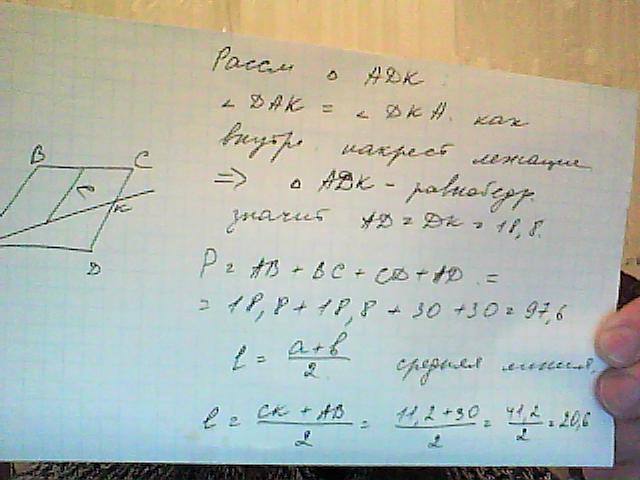 Рассм △ ADK
∠ DAK = ∠ DKA. как
внутр. накрест лежащие
⇒ △ ADK - равнобедр.
значит AD = DK = 18,8.
B C
K
D
P = AB + BC + CD + AD =
= 18,8 + 18,8 + 30 + 30 = 97,6
l = (a+b)/2 средняя линия.
l = (CK + AB)/2 = (11,2 + 30)/2 = 41,2/2 = 20,6